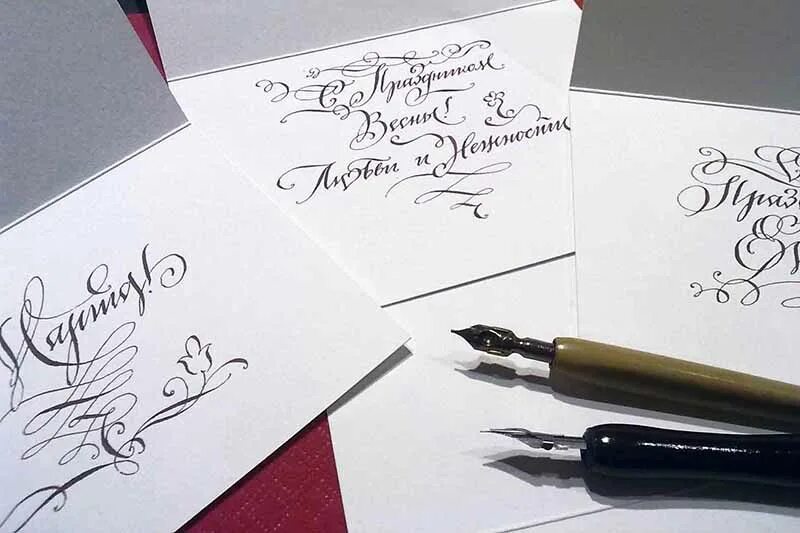 С Праздником
Весны!
Любви и Нежности
Марта!
Праз